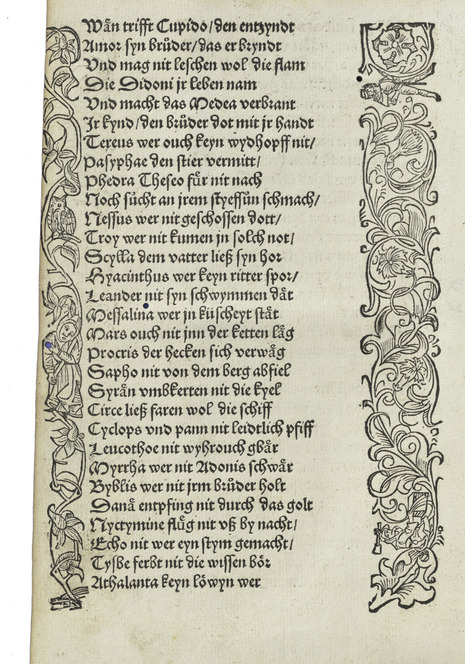 Wån trifft Cupido/den entzyndt
Amor syn brůder/das er bryndt
Vnd mag nit leschen wol die flam
Die Didoni jr leben nam
Vnd macht das Medea verbrant
Jr kynd/den brůder dot mit jr handt
Tereus wer ouch keyn wydhopff nit/
Pasyphae den stier vermitt/
Phedra Theseo fůr nit nach
Noch sůcht an jrem styeffsůn schmach/
Nessus wer nit geschossen dott/
Troy wer nit kumen jn solch not/
Scylla dem vatter ließ syn hor
Hyacinthus wer keyn ritter spor/
Leander nit syn schwymmen dåt
Messalina wer jn küscheyt ståt
Mars ouch nit jnn der ketten låg
Procris der hecken sich verwåg
Sapho nit von dem berg abfiel
Syrån vmbkerten nit die kyel
Circe ließ faren wol die schiff
Cyclops vnd pann nit leidtlich pfiff
Leucothoe nit wyhrouch gbår
Myrrha wer nit Adonis schwår
Byblis wer nit jrm brůder holt
Danå entpfing nit durch das golt
Nyctymine flůg nit vß by nacht/
Echo nit wer eyn stym gemacht/
Tysbe ferbt nit die wissen bör
Athalanta keyn löwyn wer